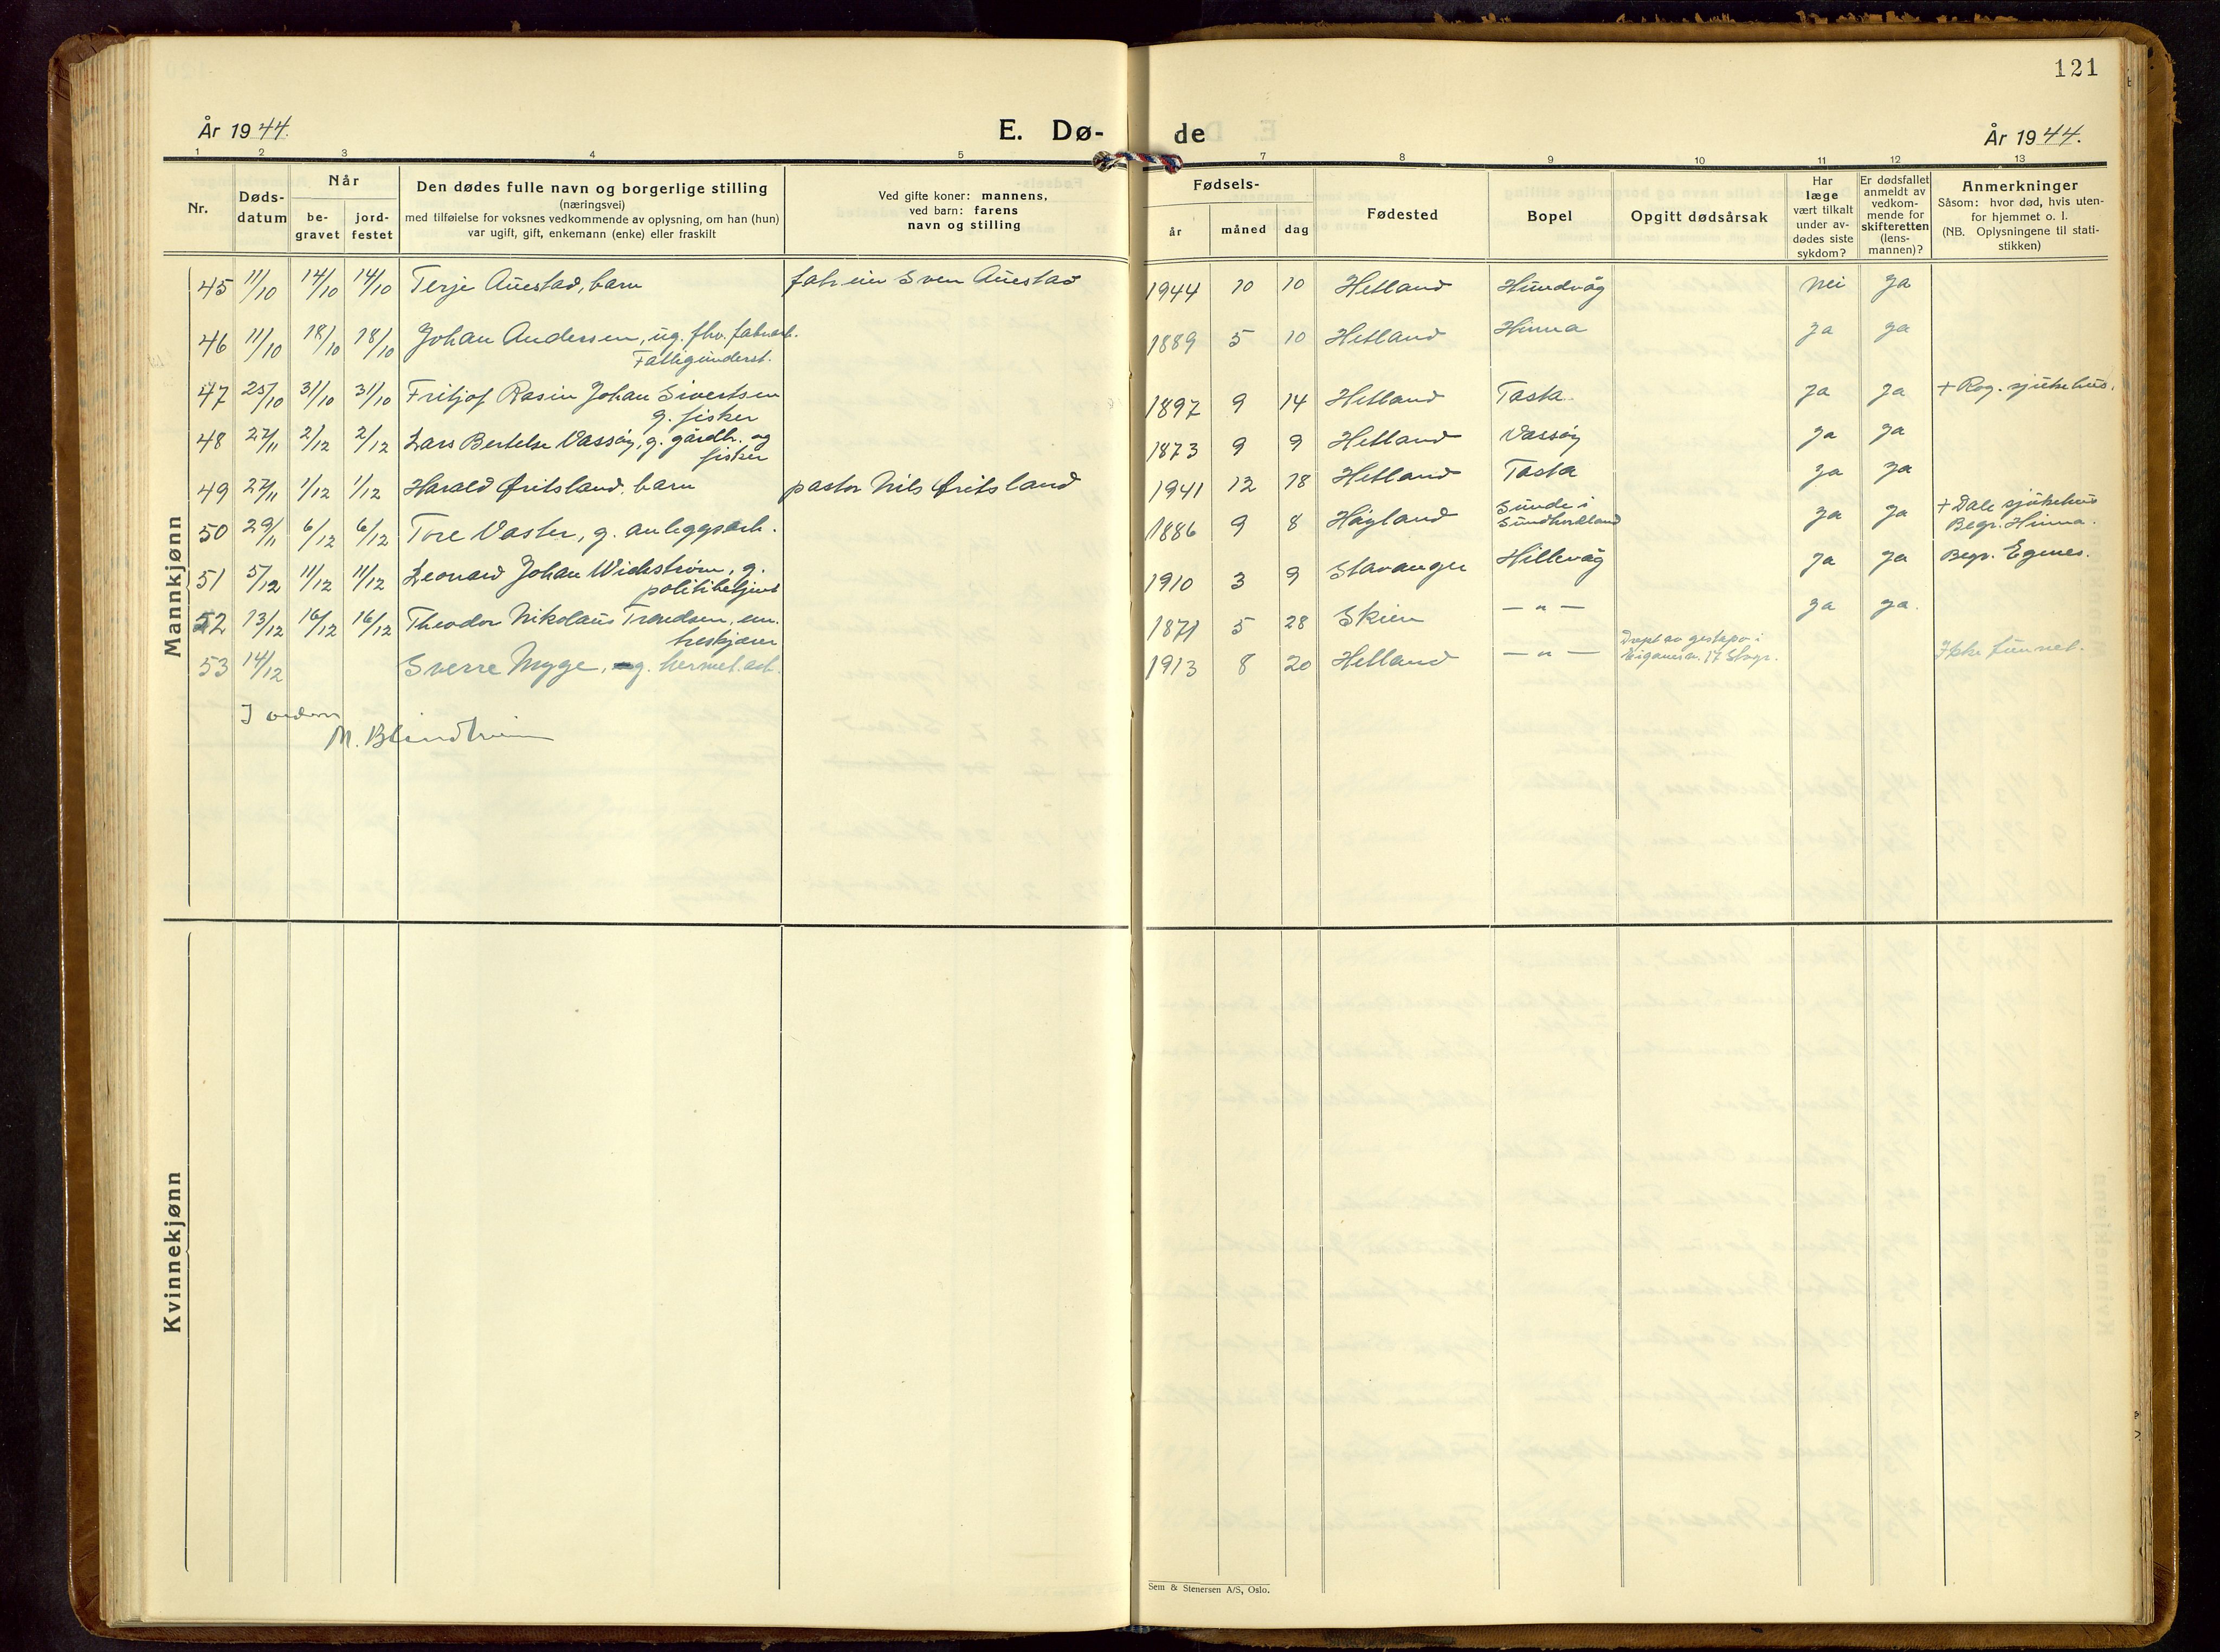 121
År 1944.
E. Dø-
de
År 1944.
1 2 3 4 5 7 8 9 10 11 12 13
Nr.
Døds-
datum
Når
be-
gravet
jord-
festet
Den dødes fulle navn og borgerlige stilling
(næringsvei)
med tilføielse for voksnes vedkommende av oplysning, om han (hun)
var ugift, gift, enkemann (enke) eller fraskilt
Ved gifte koner: mannens,
ved barn: farens
navn og stilling
Fødsels-
år
måned
dag
Fødested
Bopel
Opgitt dødsårsak
Har
læge
vært tilkalt
under av-
dødes siste
sykdom?
Er dødsfallet
anmeldt av
vedkom-
mende for
skifteretten
(lens-
mannen)?
Anmerkninger
Såsom: hvor død, hvis uten-
for hjemmet o. l.
(NB. Oplysningene til stati-
stikken)
Mannkjønn
45 11/10 14/10 14/10 Terje Auestad, barn Sven Auestad 1944 10 10 Hetland Hundvåg nei Ja
46 11/10 18/10 18/10 Johan Andersen, ug. fhv. fabrarb. 1889 5 10 Hetland Hinna Ja Ja
Fattigunderst.
47 25/10 31/10 31/10 Fritjof Rasin Johan Sivertsen 1897 9 14 Hetland Tasta Ja Ja + Rog. sjukehus.
g. fisker
48 27/11 2/12 2/12 Lars Bertelse Vassøy, g. gårdbr. og 1873 9 9 Hetland Vassøy Ja Ja
fisker
49 27/11 1/12 1/12 Harald Øritsland, barn pastor Nils Øritsland 1941 12 18 Hetland Tasta Ja Ja
50 29/11 6/12 6/12 Tore Vaster, g. anleggsarb. 1886 9 8 Høyland Sunde i Ja Ja + Dale sjukehus
Sundhordland Begr. Hinna.
51 5/12 11/12 11/12 Leonard Johan Wickstrøm, g. 1910 3 9 Stavanger Hillevåg Ja Ja Begr. Egenes.
politibetjent
52 13/12 16/12 16/12 Theodor Nikolaus Trondsen, em. 1871 5 28 Skien — " — Ja Ja.
treskjærer
53 14/12 Sverre Myge, g. hermet.arb. 1913 8 20 Hetland — " — Drept av gestapo i Ikke funnet.
Eiganesv. 17 Stvgr.
I orden
M. Blindheim
Kvinnekjønn
Sem & Stenersen A/S, Oslo.